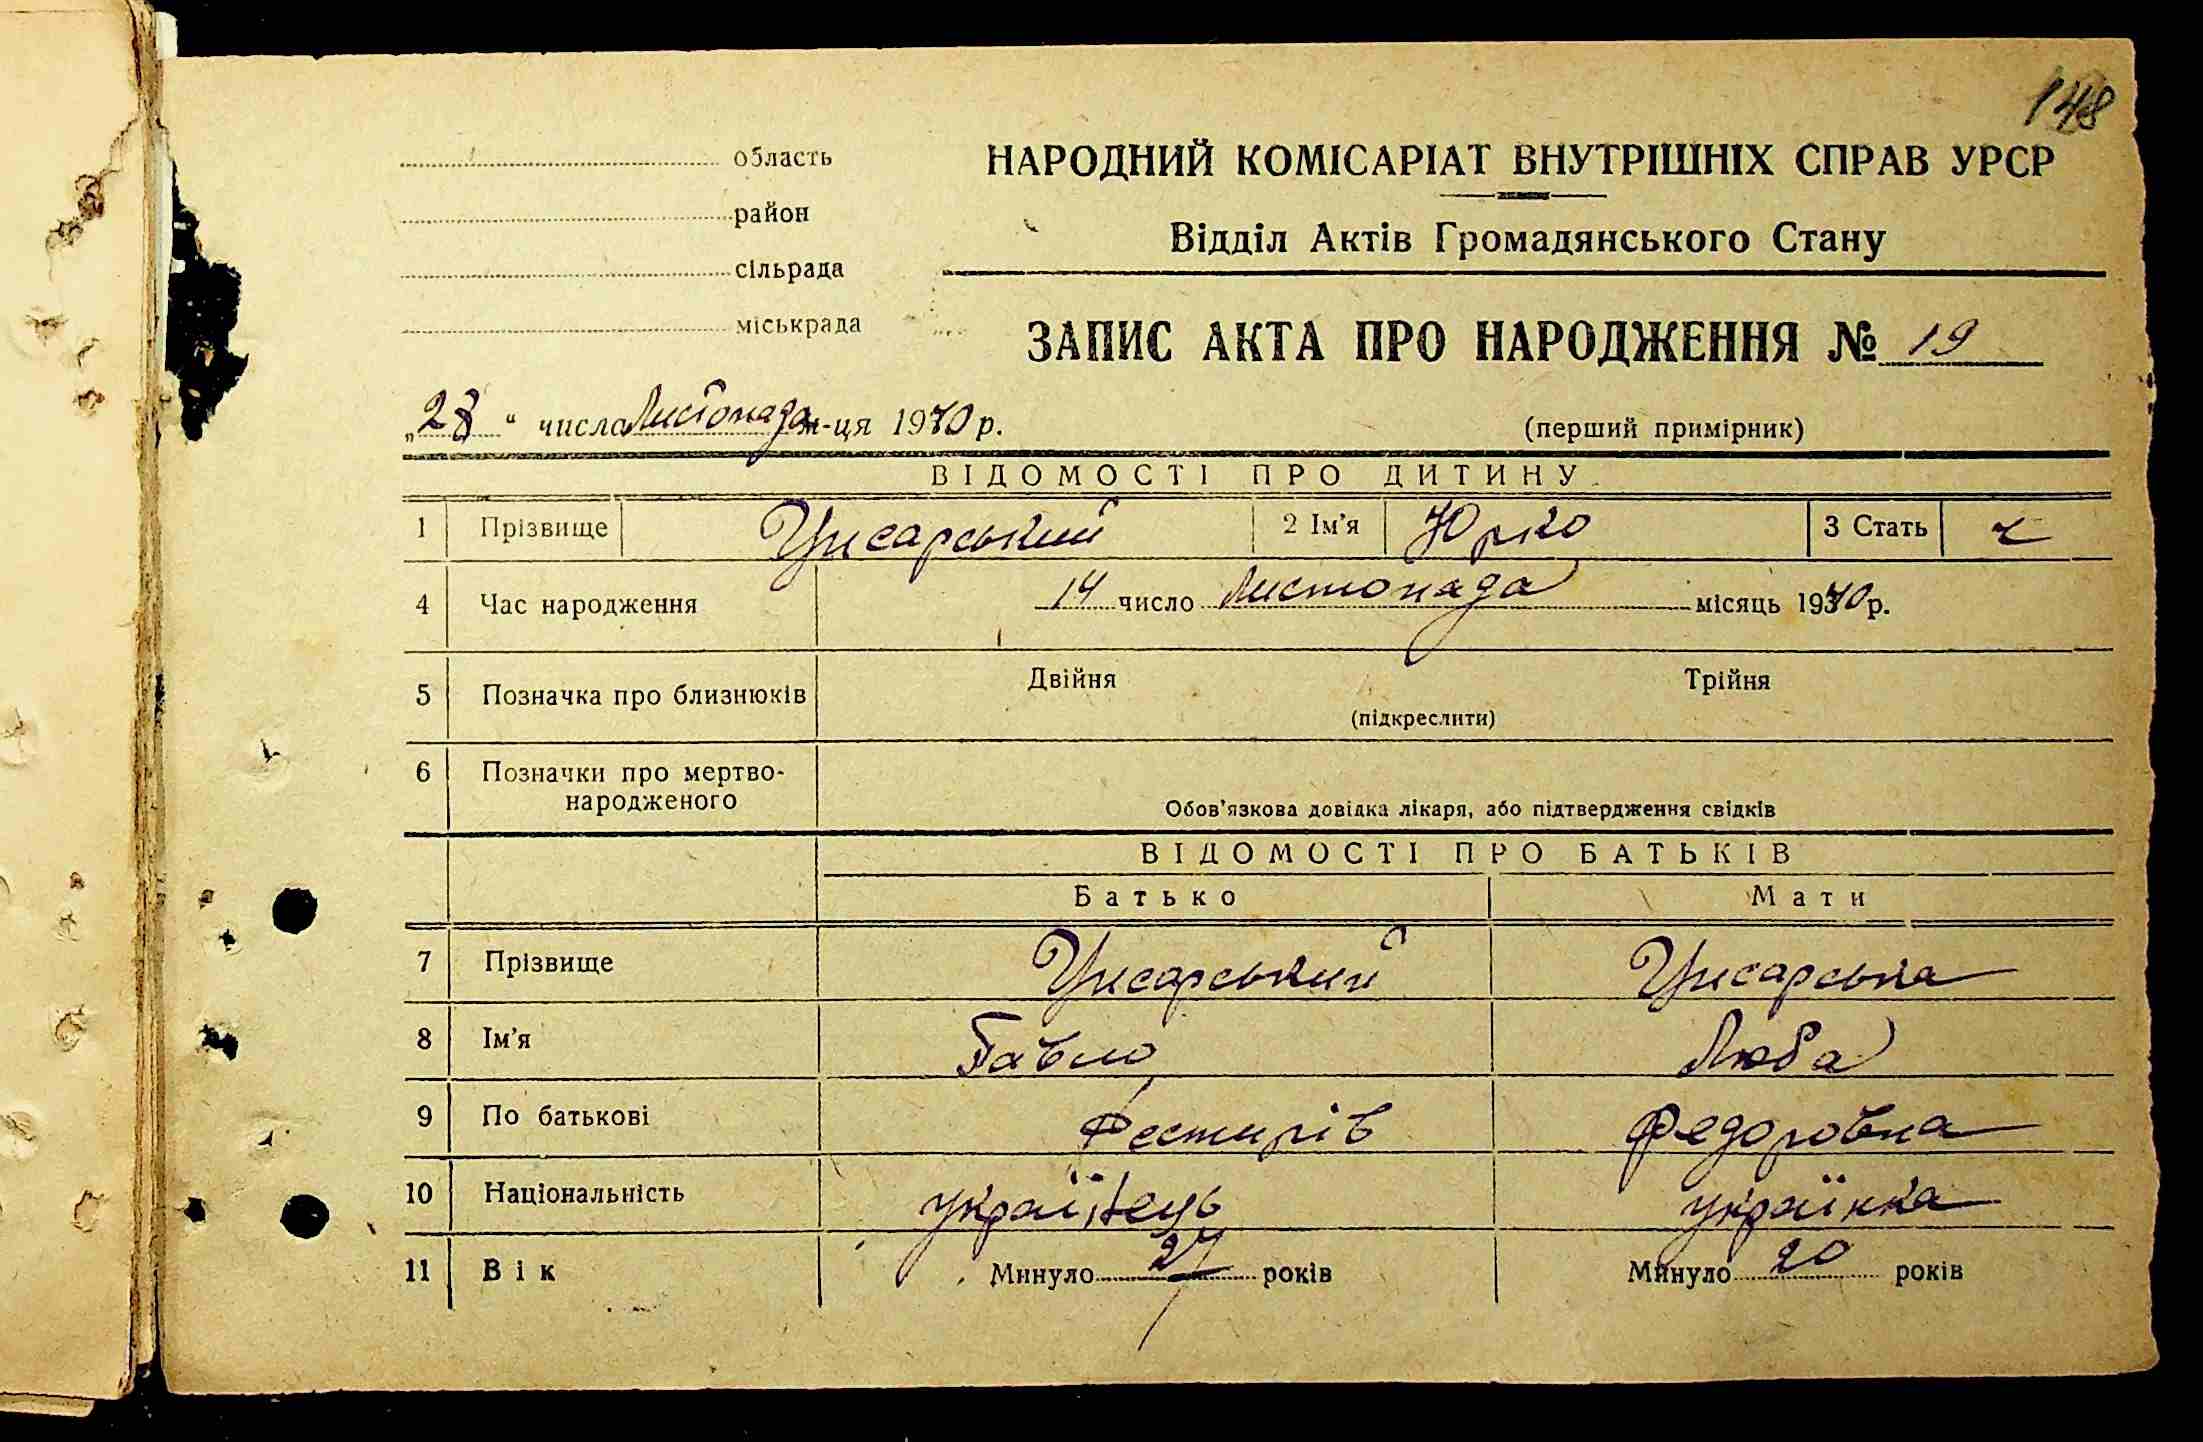 148
область
район
сільрада
міськрада
НАРОДНИЙ КОМІСАРІАТ ВНУТРІШНІХ СПРАВ УРСР
Відділ Актів Громадянського Стану
ЗАПИС АКТА ПРО НАРОДЖЕННЯ № 19
„28“ числа Листопада м-ця 1940 р.
(перший примірник)
ВІДОМОСТІ ПРО ДИТИНУ
1 Прізвище Цисарський 2 Ім'я Юрко 3 Стать ч
4 Час народження 14 число Листопада місяць 1940 р.
5 Позначка про близнюків Двійня Трійня
(підкреслити)
6 Позначки про мертво-
народженого
Обов'язкова довідка лікаря, або підтвердження свідків
ВІДОМОСТІ ПРО БАТЬКІВ
Батько Мати
7 Прізвище Цисарський Цисарська
8 Ім'я Павло Люба
9 По батькові Федоровна
10 Національність українець українка
11 Вік Минуло 27 років Минуло 20 років